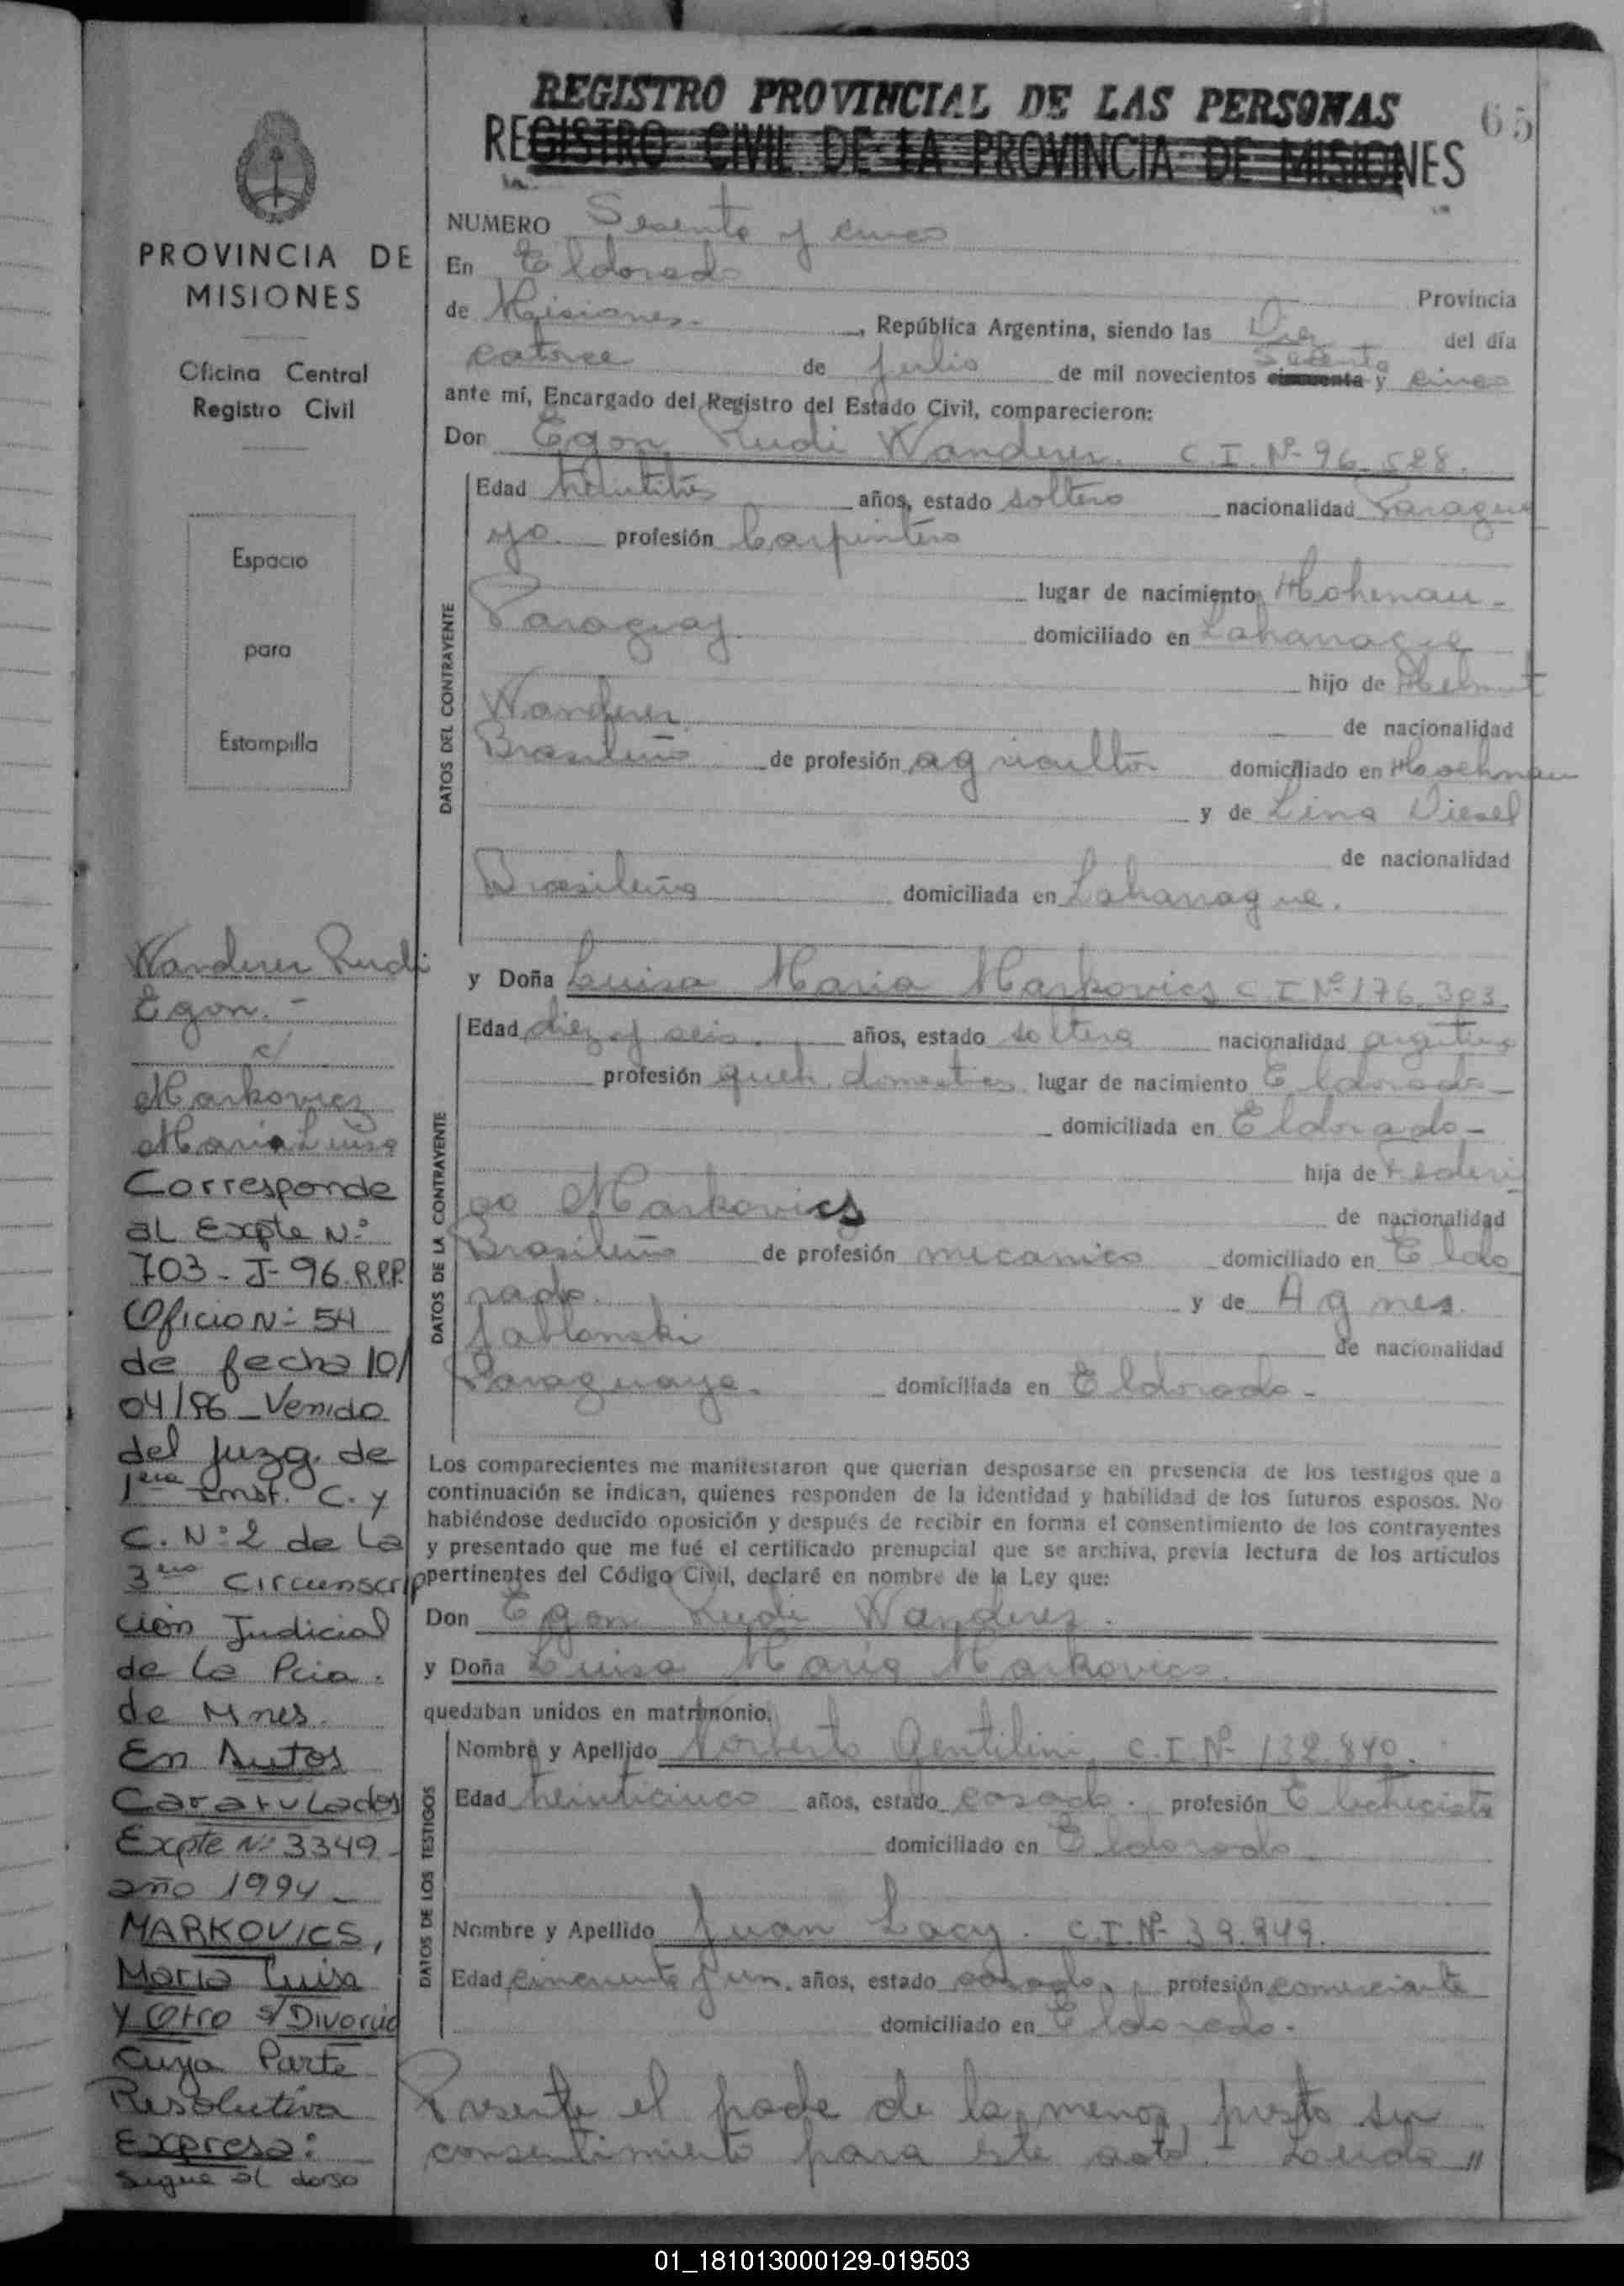 REGISTRO PROVINCIAL DE LAS PERSONAS
REGISTRO CIVIL DE LA PROVINCIA DE MISIONES
65
PROVINCIA DE
MISIONES
Oficina Central
Registro Civil
Espacio
para
Estampilla
Wanderer Rudi
Egon.-
c/
Markovicz
Maria Luisa
Corresponde
al Expte N:
703-J-96.R.P.P.
Oficio N: 54
de fecha 10/
04/96 _ Venido
del Juzg. de
1era Inst. C. y
C. N: 2 de La
3era Circunscrip
ción Judicial
de la Pcia.
de Mnes.
En Autos
Caratulados
Expte N: 3349-
año 1994_
MARKOVICS,
Maria Luisa
y Otro s/Divorcio
Cuya Parte
Resolutiva
Expresa:
Sigue al dorso
NUMERO Sesenta y cinco
En Eldorado
Provincia
de Misiones.- , República Argentina, siendo las Diez del día
catorce de julio de mil novecientos cincuenta sesenta y cinco
ante mí, Encargado del Registro del Estado Civil, comparecieron:
Don Egon Rudi Wanderer. C.I. Nº 96.528.
Edad veintitrés años, estado soltero nacionalidad Paragua
yo. profesión Carpintero
lugar de nacimiento Hohenau-
Paraguay. domiciliado en
hijo de Helmut
Wanderer
de nacionalidad
Brasileño de profesión agricultor domiciliado en Hohenau
y de Lina Diesel
de nacionalidad
Brasileña domiciliada en
y Doña Luisa Maria Markovics C.I. Nº 176.303.
Edad diez y seis. años, estado soltera nacionalidad argentina
profesión queh. domesticos lugar de nacimiento Eldorado-
domiciliada en Eldorado-
hija de Federi
co Markovics
de nacionalidad
Brasileño de profesión mecanico domiciliado en Eldo
rado. y de Agnes.
Jablonski
de nacionalidad
Paraguaya. domiciliada en Eldorado-
Los comparecientes me manifestaron que querían desposarse en presencia de los testigos que a
continuación se indican, quienes responden de la identidad y habilidad de los futuros esposos. No
habiéndose deducido oposición y después de recibir en forma el consentimiento de los contrayentes
y presentado que me fué el certificado prenupcial que se archiva, previa lectura de los artículos
pertinentes del Código Civil, declaré en nombre de la Ley que:
Don Egon Rudi Wanderer.
y Doña Luisa Maria Markovics.
quedaban unidos en matrimonio.
Nombre y Apellido Norberto Gentilini C.I. Nº 132.840.
Edad veinticinco años, estado casado. profesión
domiciliado en Eldorado
Nombre y Apellido Juan Lacy. C.I. Nº 39.949.
Edad cincuenta y un. años, estado casado, profesión comerciante
domiciliado en Eldorado.
Presente el padre de la menor, presto su
consentimiento para este acto.- Leida "
DATOS DEL CONTRAYENTE
DATOS DE LA CONTRAYENTE
DATOS DE LOS TESTIGOS
01_181013000129-019503